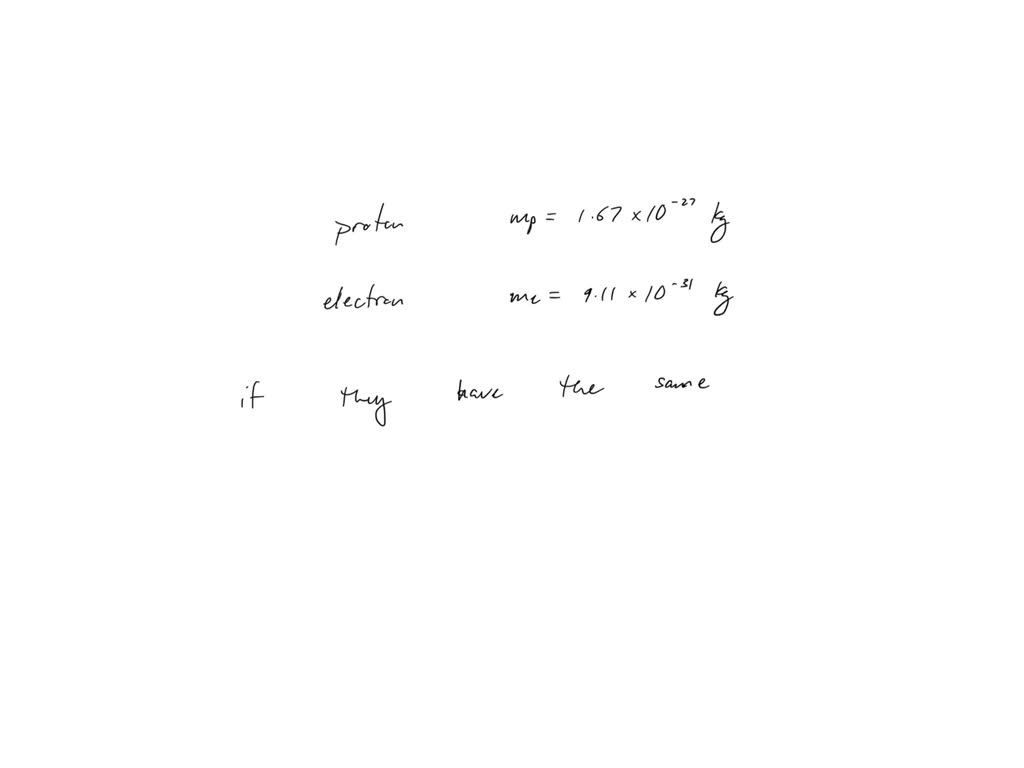 proton mp = 1.67 × 10^-27 kg
electron me = 9.11 × 10^-31 kg
if they have the same